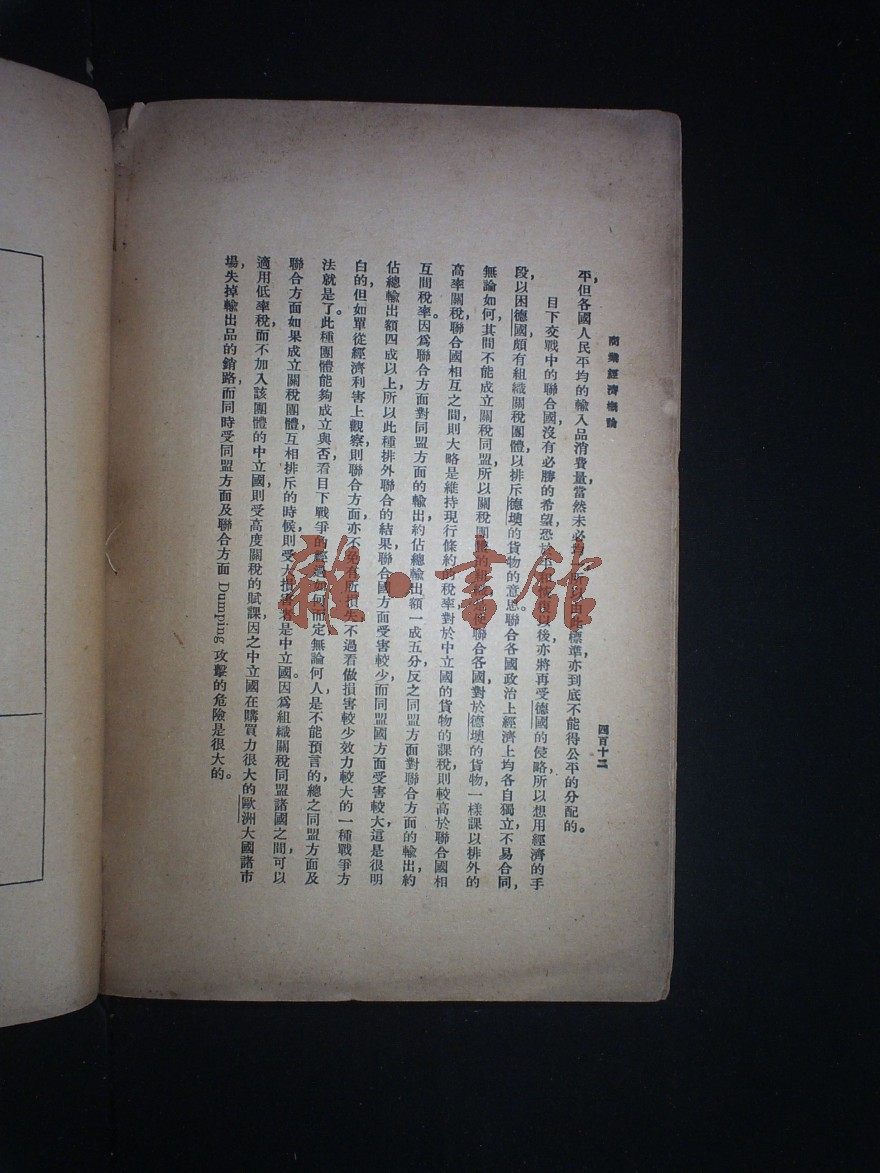 商業經濟概論
四百十二
平，但各國人民平均的輸入品消費量，當然未必均所以由此標準亦到底不能得公平的分配的。
目下交戰中的聯合國沒有必勝的希望恐於復以後亦將再受德國的侵略所以想用經濟的手
段，以困德國頗有組織關稅團體，以排斥德墺的貨物的意思。聯合各國政治上經濟上均各自獨立不易合同，
無論如何，其間不能成立關稅同盟，所以關稅團體的組使聯合各國，對於德墺的貨物，一樣課以排外的
高率關稅，聯合國相互之間，則大略是維持現行條約的稅率，對於中立國的貨物的課稅，則較高於聯合國相
互間稅率。因爲聯合方面對同盟方面的輸出，約佔總輸出額一成五分，反之同盟方面對聯合方面的輸出，約
佔總輸出額四成以上，所以此種排外聯合的結果，聯合國方面受害較少，而同盟國方面受害較大，這是很明
白的，但如單從經濟利害上觀察，則聯合方面，亦不免有所損失，不過看做損害較少效力較大的一種戰爭方
法就是了。此種團體能夠成立與否，看目下戰爭的如何而定，無論何人，是不能預言的，總之同盟方面及
聯合方面，如果成立關稅團體，互相排斥的時候，則受大損害者，是中立國。因爲組織關稅同盟諸國之間，可以
適用低率稅，而不加入該團體的中立國，則受高度關稅的賦課，因之中立國在購買力很大的歐洲大國諸市
場，失掉輸出品的銷路，而同時受同盟方面及聯合方面 Dumping 攻擊的危險是很大的。
雜·書館